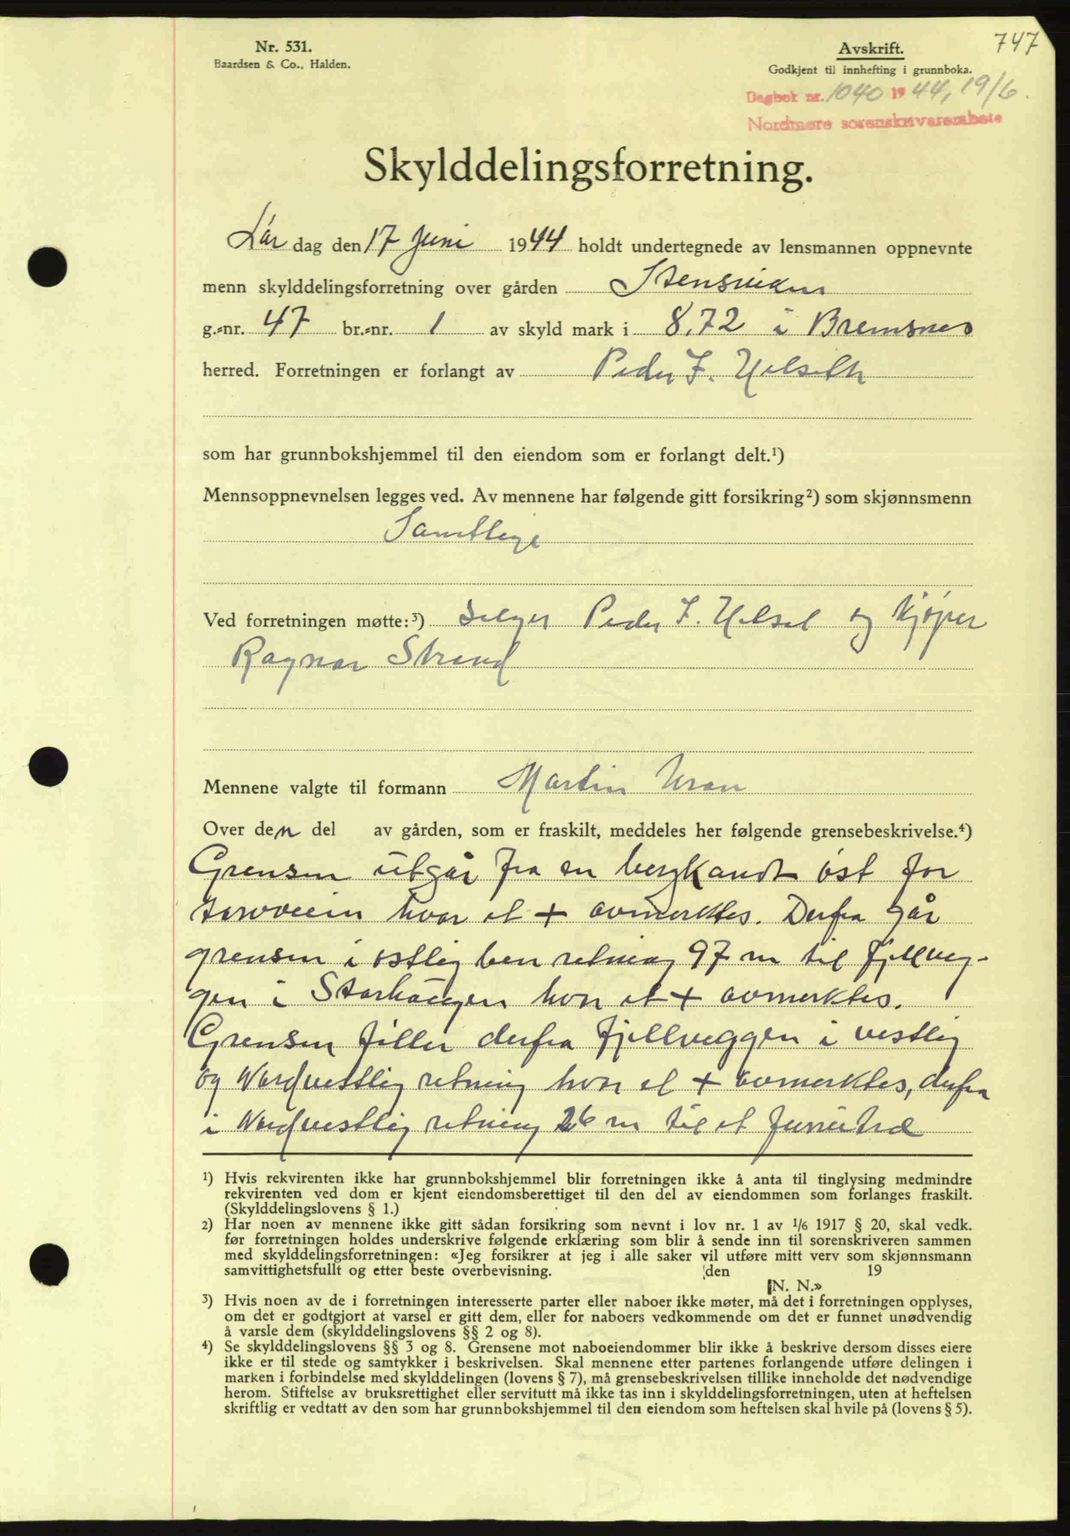 747
Nr. 531.
Baardsen & Co., Halden.
Avskrift.
Godkjent til innhefting i grunnboka.
Dagbok nr. 1040 1944, 19/6.
Nordmøre sorenskriverembete
Skylddelingsforretning.
Lør dag den 17 Juni 1944 holdt undertegnede av lensmannen oppnevnte
menn skylddelingsforretning over gården Stensviken
g.-nr. 47 br.-nr. 1 av skyld mark i 8,72 i Bremsnes
herred. Forretningen er forlangt av Peder J.
som har grunnbokshjemmel til den eiendom som er forlangt delt.¹)
Mennsoppnevnelsen legges ved. Av mennene har følgende gitt forsikring²) som skjønnsmenn
Samtlige
Ved forretningen møtte:³) Selger Peder J. og kjøper
Ragnar Strand
Mennene valgte til formann Martin
Over den del av gården, som er fraskilt, meddeles her følgende grensebeskrivelse.⁴)
Grensen utgår fra en bergkandt øst for
hvor et + avmerktes. Derfra går
grensen i østlig ben retning 97 m til fjellveg-
gen i Storhaugen hvor et + avmerktes.
Grensen føller derfra fjellveggen i vestlig
og Nordvestlig retning hvor et + avmerktes, derfra
i Nordvestlig retning 26 m til et furutræ
¹) Hvis rekvirenten ikke har grunnbokshjemmel blir forretningen ikke å anta til tinglysing medmindre
rekvirenten ved dom er kjent eiendomsberettiget til den del av eiendommen som forlanges fraskilt.
(Skylddelingslovens § 1.)
²) Har noen av mennene ikke gitt sådan forsikring som nevnt i lov nr. 1 av ¹/₆ 1917 § 20, skal vedk.
før forretningen holdes underskrive følgende erklæring som blir å sende inn til sorenskriveren sammen
med skylddelingsforretningen: «Jeg forsikrer at jeg i alle saker vil utføre mitt verv som skjønnsmann
samvittighetsfullt og etter beste overbevisning. den 19
[N. N.»
³) Hvis noen av de i forretningen interesserte parter eller naboer ikke møter, må det i forretningen opplyses,
om det er godtgjort at varsel er gitt dem, eller for naboers vedkommende om det er funnet unødvendig
å varsle dem (skylddelingslovens §§ 2 og 8).
⁴) Se skylddelingslovens §§ 3 og 8. Grensene mot naboeiendommer blir ikke å beskrive dersom disses eiere
ikke er til stede og samtykker i beskrivelsen. Skal mennene etter partenes forlangende utføre delingen i
marken i forbindelse med skylddelingen (lovens § 7), må grensebeskrivelsen tillike inneholde det nødvendige
herom. Stiftelse av bruksrettighet eller servitutt må ikke tas inn i skylddelingsforretningen, uten at heftelsen
skriftlig er vedtatt av den som har grunnbokshjemmel til den eiendom som heftelsen skal hvile på (lovens § 5).